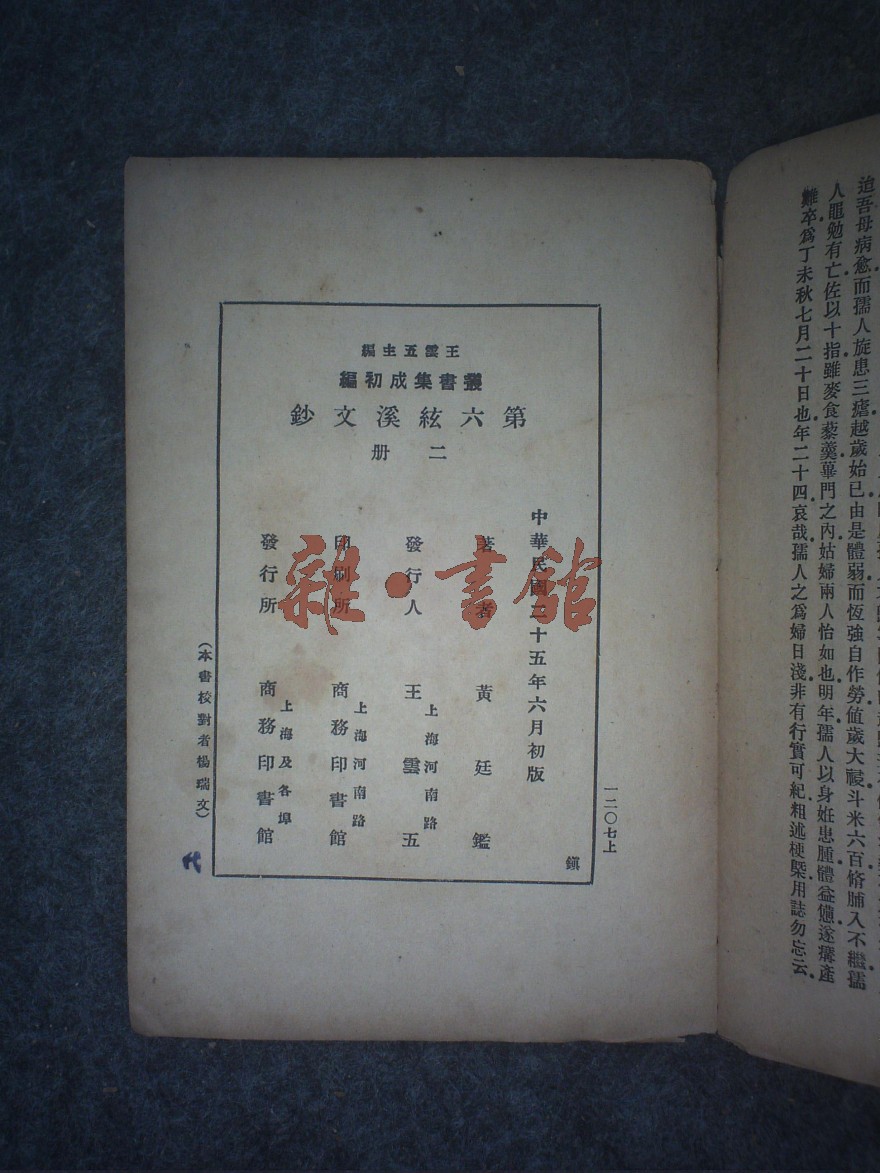 迨吾母病愈而孺人旋患三瘧越歲始已由是體弱而恆強自作勞値歲大祲斗米六百脩脯入不繼孺
人黽勉有亡佐以十指雖麥食藜羹蓽門之內姑婦兩人怡如也明年孺人以身姙患腫體益憊遂溝產
難卒爲丁未秋七月二十日也年二十四哀哉孺人之爲婦日淺非有行實可紀粗述梗槩用誌勿忘云
王雲五主編
叢書集成初編
第六絃溪文鈔
二册
中華民國二十五年六月初版
著者 黃廷鑑
發行人 上海河南路 王雲五
印刷所 上海河南路 商務印書館
發行所 上海及各埠 商務印書館
(本書校對者楊瑞文)
一二〇七上
鎭
代
雜·書館